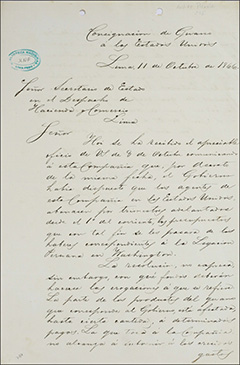 Consignacion de Guano
a los Estados Unidos
Lima 11 de Octubre de 1866
Señor Secretario de Estado
en el Despacho de
Hacienda y Comercio
Lima
Señor
Hoi se ha recibido el apreciable
oficio de US de 9 de Octubre comunicando
a esta Compañia que, por decreto
de la misma fecha, el Gobierno
habia dispuesto que los agentes de
esta Compañia en los Estados Unidos
abonasen por trimestres adelantados
desde el 1º del corriente los presupuestos
que con tal fin se les pasará a los
haberes correspondientes a la Legacion
Peruana en Washington.
La resolucion, no expresa
sin embargo, con que fondos deberán
hacerse las erogaciones a que se refiere
La parte de los productos del guano
que corresponde al Gobierno esta afectada,
hasta cierta cantidad, a determinados
pagos. La que toca á la Compañia
no alcanza á cubrir á los
gastos